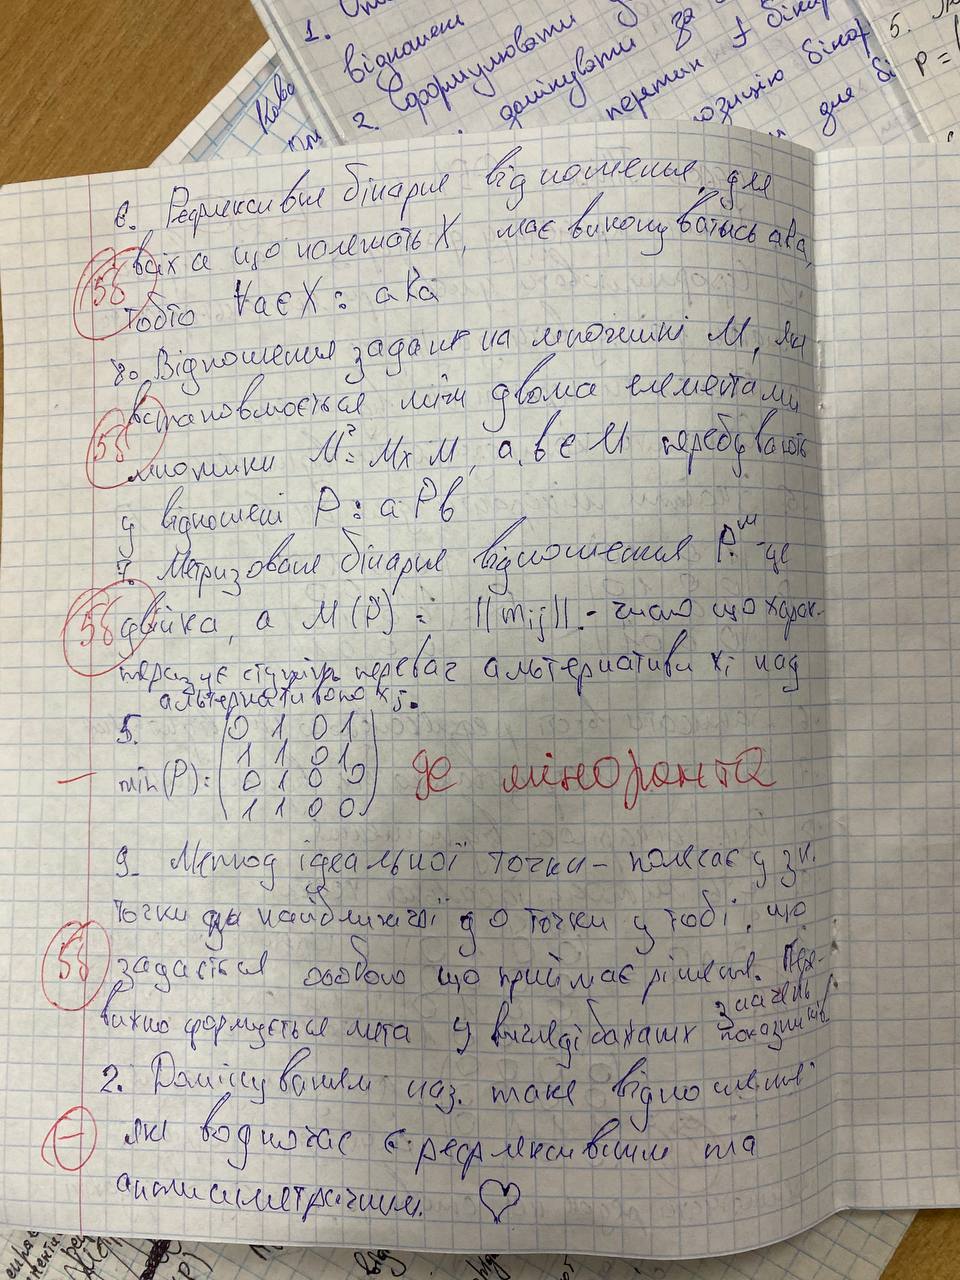 1.
відношені
2. Сформулювати
домінувати за
перетин
5.
P =
для бі
6. Рефлексивне бінарне відношення, для
всіх а що належать X, має виконуватись aRa,
5б
тобто ∀a∈X: aRa
8. Відношення задане на множині M, як
встановлюється між двома елементами
5б
множини M² = M×M, a, b ∈ M перебувають
у відношені P: a P b
7. Метризоване бінарне відношення Pᵐ - це
5б
двійка, а M(P) = ||mij|| - число що харак-
теризує ступінь переваг альтернативи xi над
альтернативою xj.
5.
min(P):
0 1 0 1
1 1 0 1
0 1 0 0
1 1 0 0
де міноранта
—
9. Метод ідеальної точки - полягає у зн.
точки найближчої до точки у тобі, що
5б
задається особою що приймає рішення. Пере-
важно формується мета у вигляді бажаних значень
показників
2. Домінуванням наз. таке відношення
які водночас є рефлексивним та
—
антисиметричним. ♡